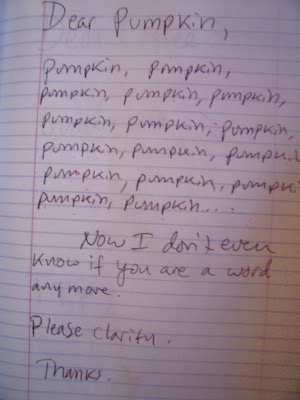 Dear Pumpkin,
pumpkin, pumpkin,
pumpkin, pumpkin, pumpkin,
pumpkin, pumpkin, pumpkin,
pumpkin, pumpkin, pumpkin
pumpkin, pumpkin, pumpki
pumpkin, pumpkin....
Now I don't even
know if you are a word
any more.
Please clarify.
Thanks.